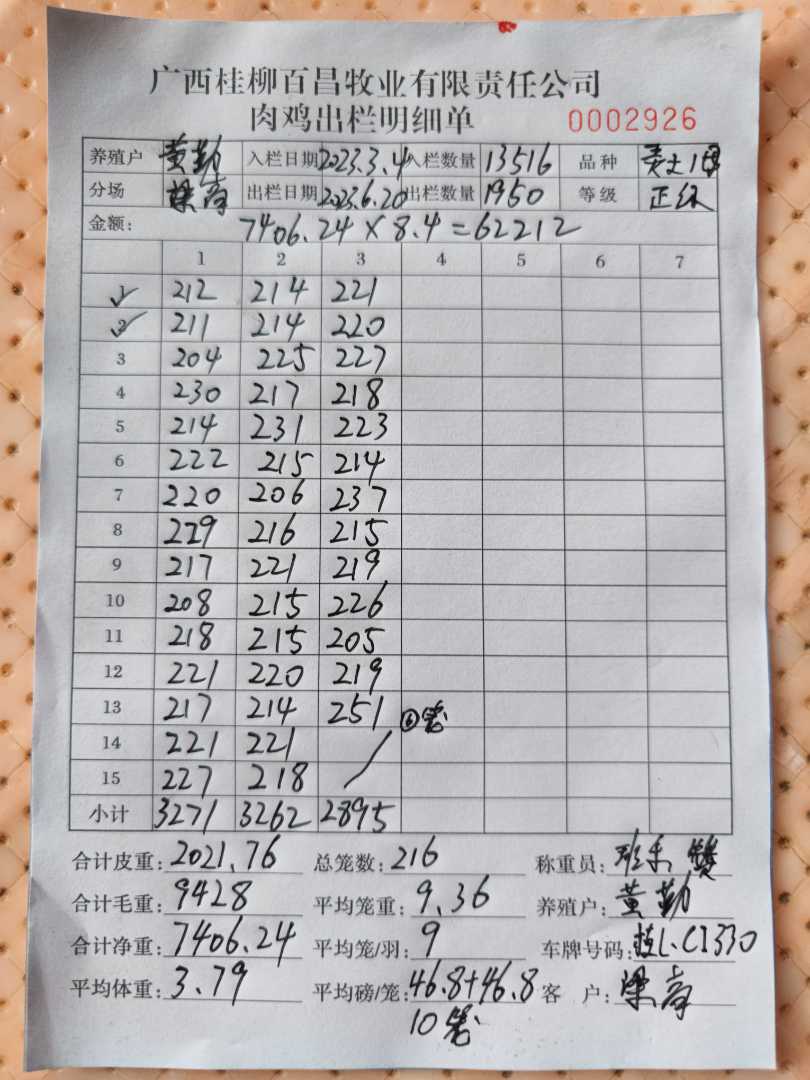 广西桂柳百昌牧业有限责任公司
肉鸡出栏明细单 0002926
养殖户 黄勤 入栏日期 2023.3.4 入栏数量 13516 品种
分场 出栏日期 2023.6.20 出栏数量 1950 等级
金额: 7406.24 × 8.4 = 62212
1 2 3 4 5 6 7
1 212 214 221
2 211 214 220
3 204 225 227
4 230 217 218
5 214 231 223
6 222 215 214
7 220 206 237
8 229 216 215
9 217 221 219
10 208 215 226
11 218 215 205
12 221 220 219
13 217 214 251 ⑥
14 221 221
15 227 218
小计 3271 3262 2895
合计皮重: 2021.76 总笼数: 216 称重员:
合计毛重: 9428 平均笼重: 9.36 养殖户: 黄勤
合计净重: 7406.24 平均笼/羽: 9 车牌号码:
平均体重: 3.79 平均磅/笼: 46.8+46.8 客户:
10